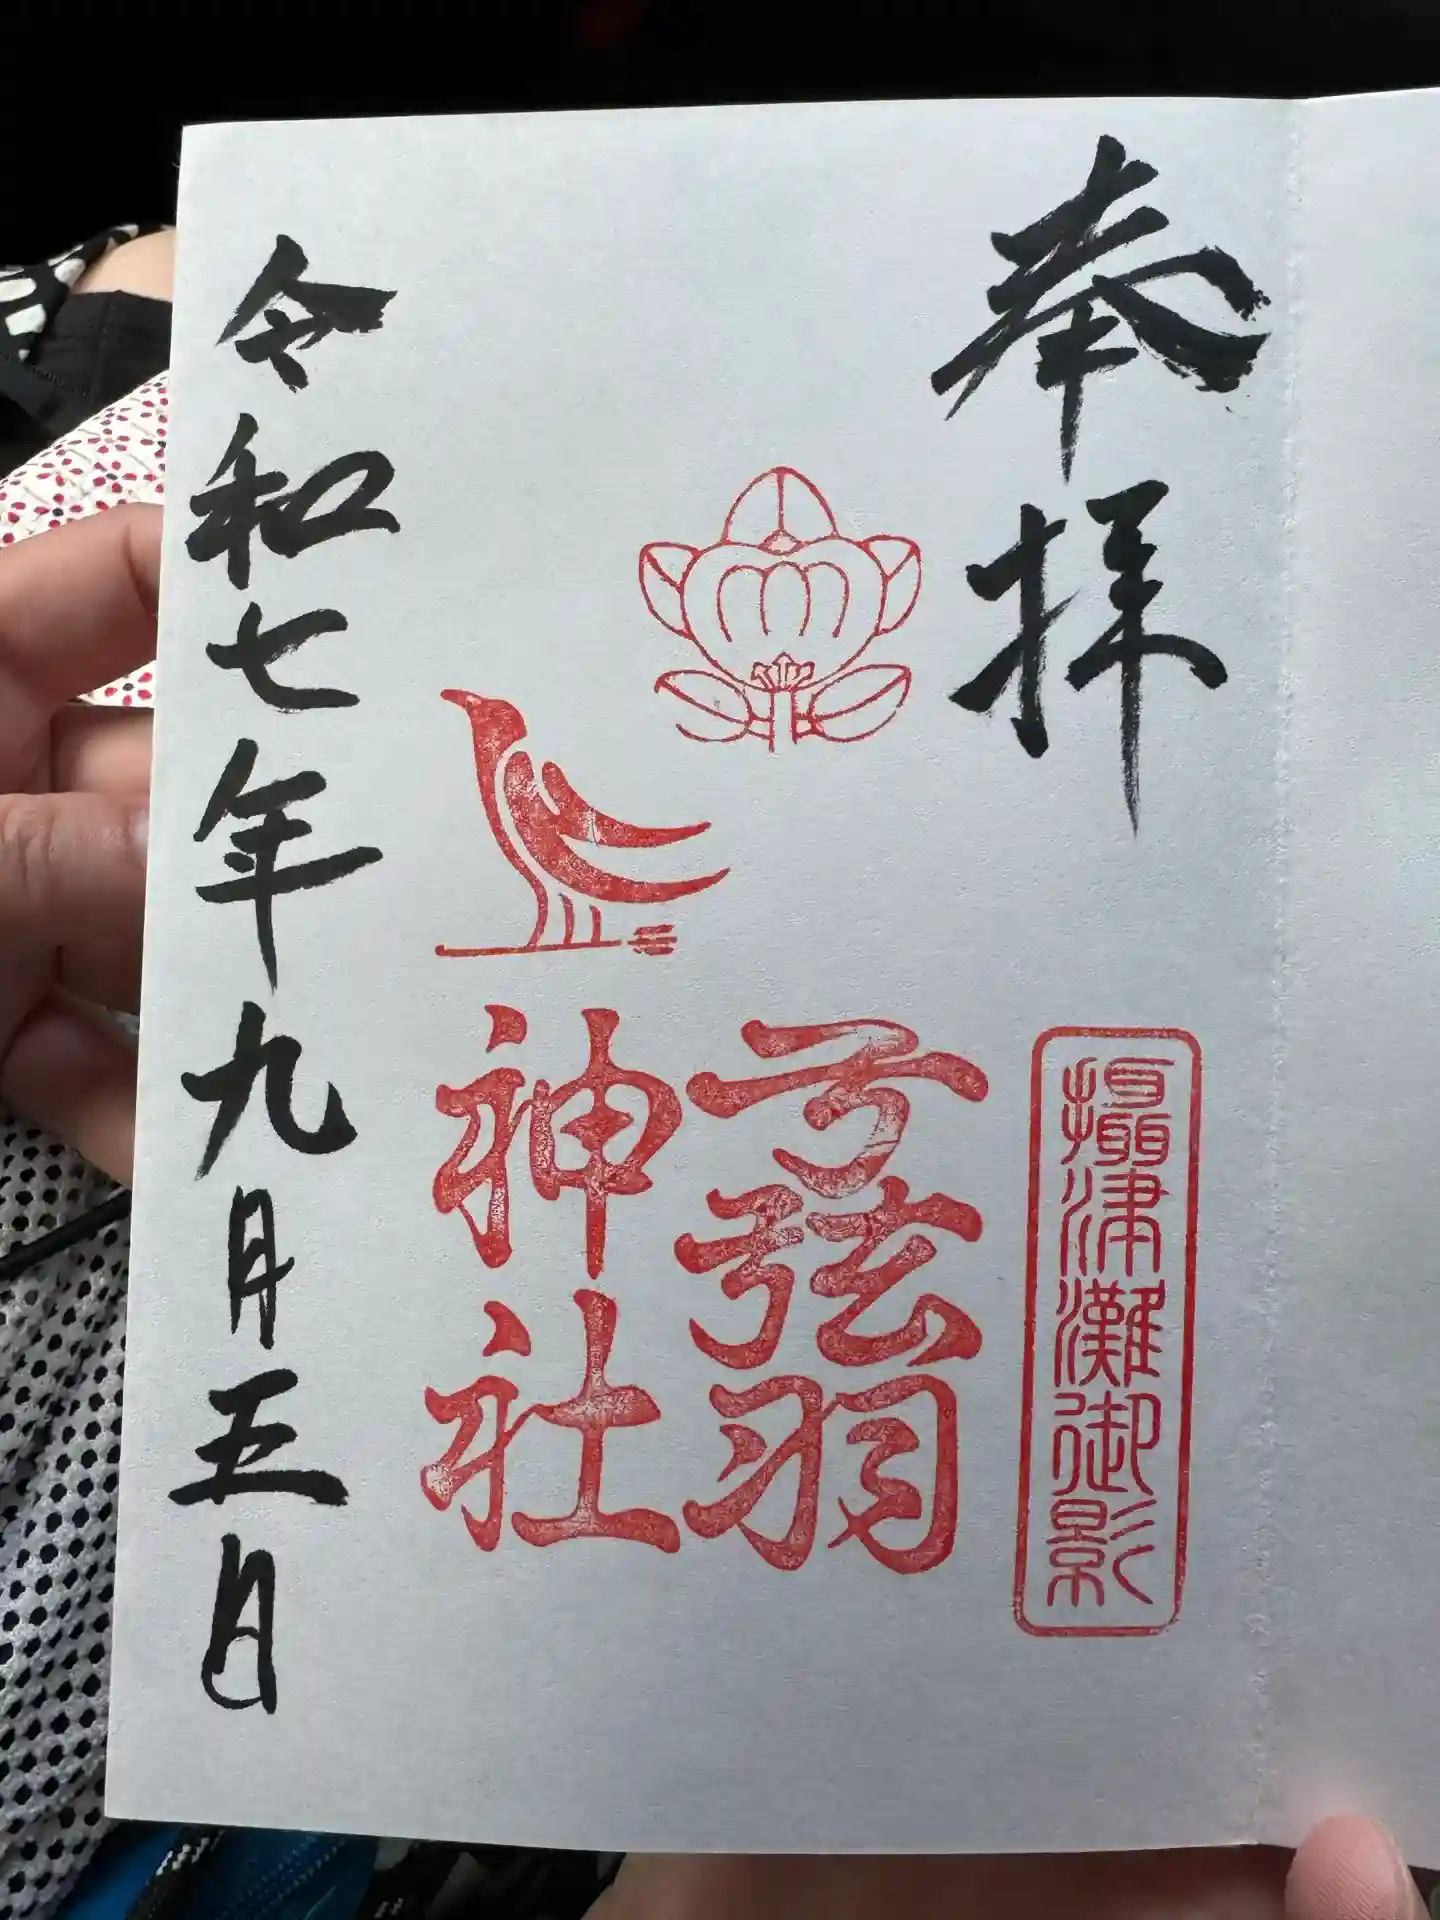 奉拝
攝津灘御影
弓弦羽
神社
令和七年九月五日